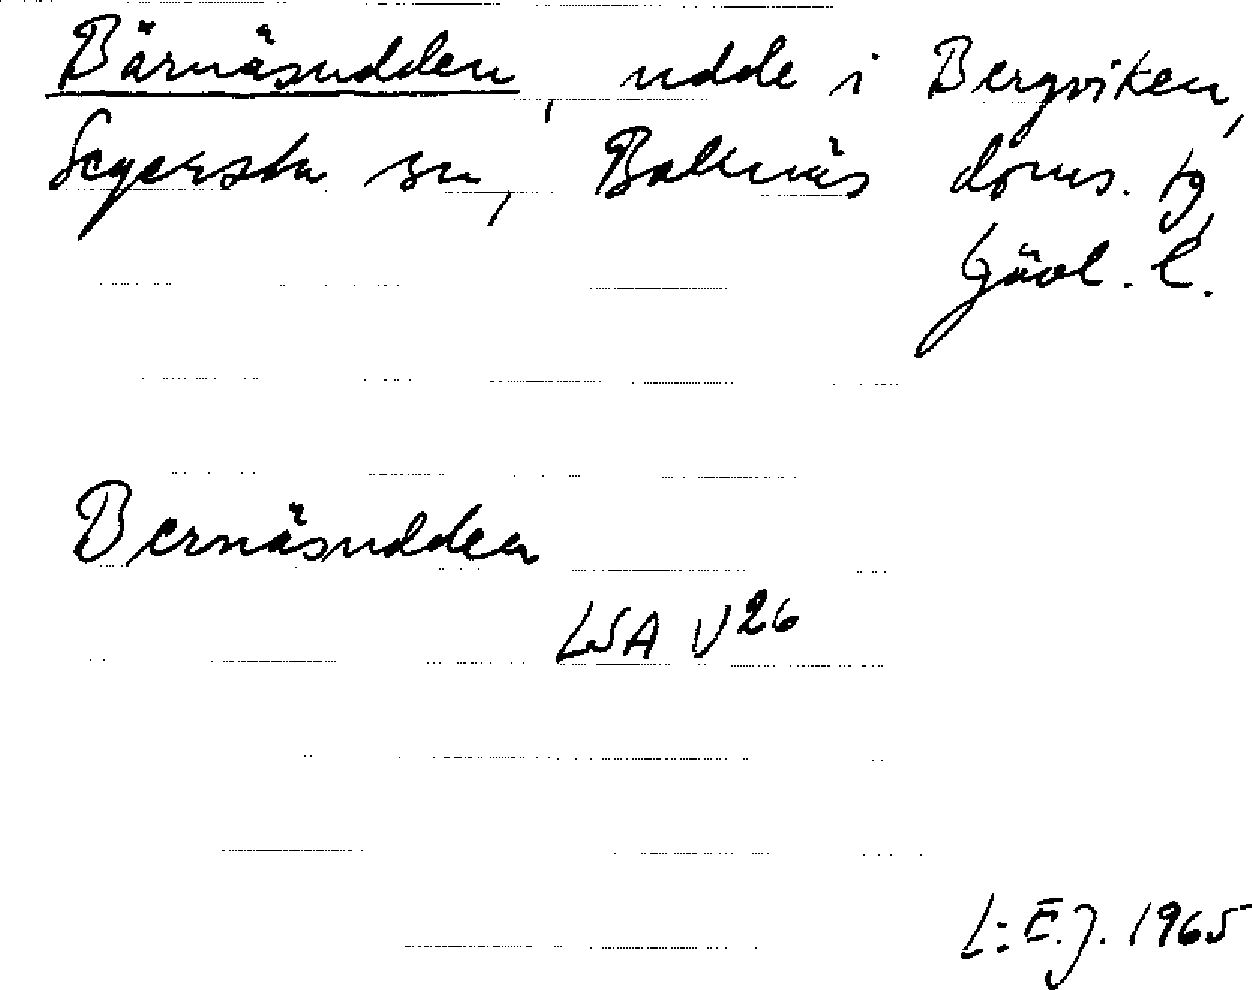 Bärnäsudden, udde i Bergviken,
Segersta sn, Bollnäs doms. tg,
Gävl. l.
Bernäsudden
LSA V26
L: E.J. 1965